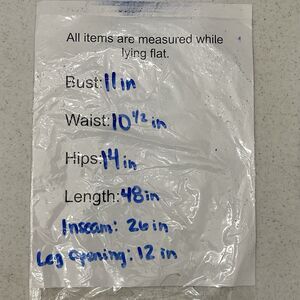 All items are measured while
lying flat.
Bust: 11 in
Waist: 10 1/2 in
Hips: 14 in
Length: 48 in
Inseam: 26 in
Leg opening: 12 in